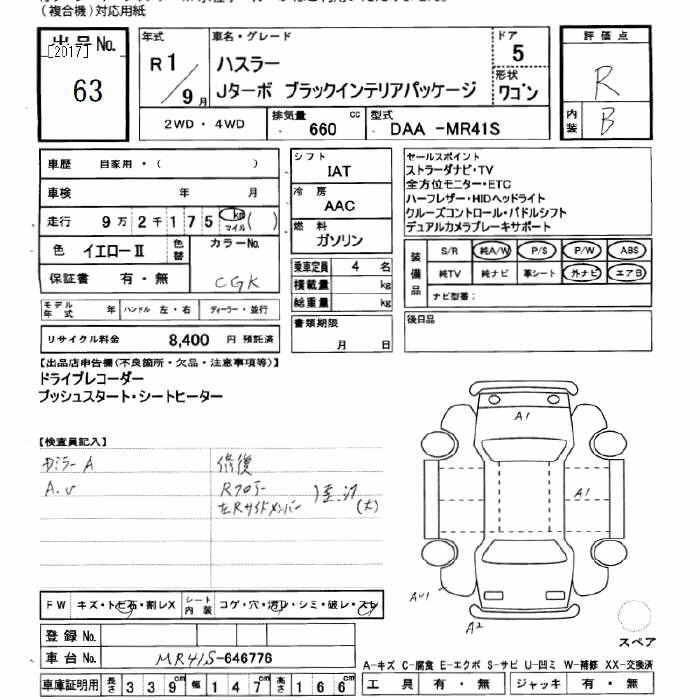 (複合機)対応用紙
出品No.
[2017]
63
年式
R1/9月
車名・グレード
ハスラー
Jターボ ブラックインテリアパッケージ
ドア
5
形状
ワゴン
評価点
R
内装
B
2WD・4WD
排気量
660 cc
型式
DAA -MR41S
車歴 自家用・( )
車検 年 月
走行 9万2千175 km マイル ( )
色 イエローⅡ 色替
カラーNo.
CGK
保証書 有・無
モデル年式 年 ハンドル 左・右 ディーラー・並行
リサイクル料金 8,400 円 預託済
シフト
IAT
冷房
AAC
燃料
ガソリン
乗車定員 4 名
積載量 kg
総重量 kg
書類期限
月 日
セールスポイント
ストラーダナビ・TV
全方位モニター・ETC
ハーフレザー・HIDヘッドライト
クルーズコントロール・パドルシフト
デュアルカメラブレーキサポート
装備品
S/R 純A/W P/S P/W ABS
純TV 純ナビ 革シート 外ナビ エアB
ナビ型番:
後日品
【出品店申告欄(不良箇所・欠品・注意事項等)】
ドライブレコーダー
プッシュスタート・シートヒーター
【検査員記入】
ミラーA
A.U
修復
Rフロアー
左Rサイドメンバー
(大)
A1
A1
AU1
A2
スペア
FW キズ・トビ石・割レX
シート内装 コゲ・穴・汚レ・シミ・破レ・スレ
登録No.
車台No. MR41S-646776
A-キズ C-腐食 E-エクボ S-サビ U-凹ミ W-補修 XX-交換済
車庫証明用 長さ 339cm 幅 147cm 高さ 166
工具 有・無 ジャッキ 有・無